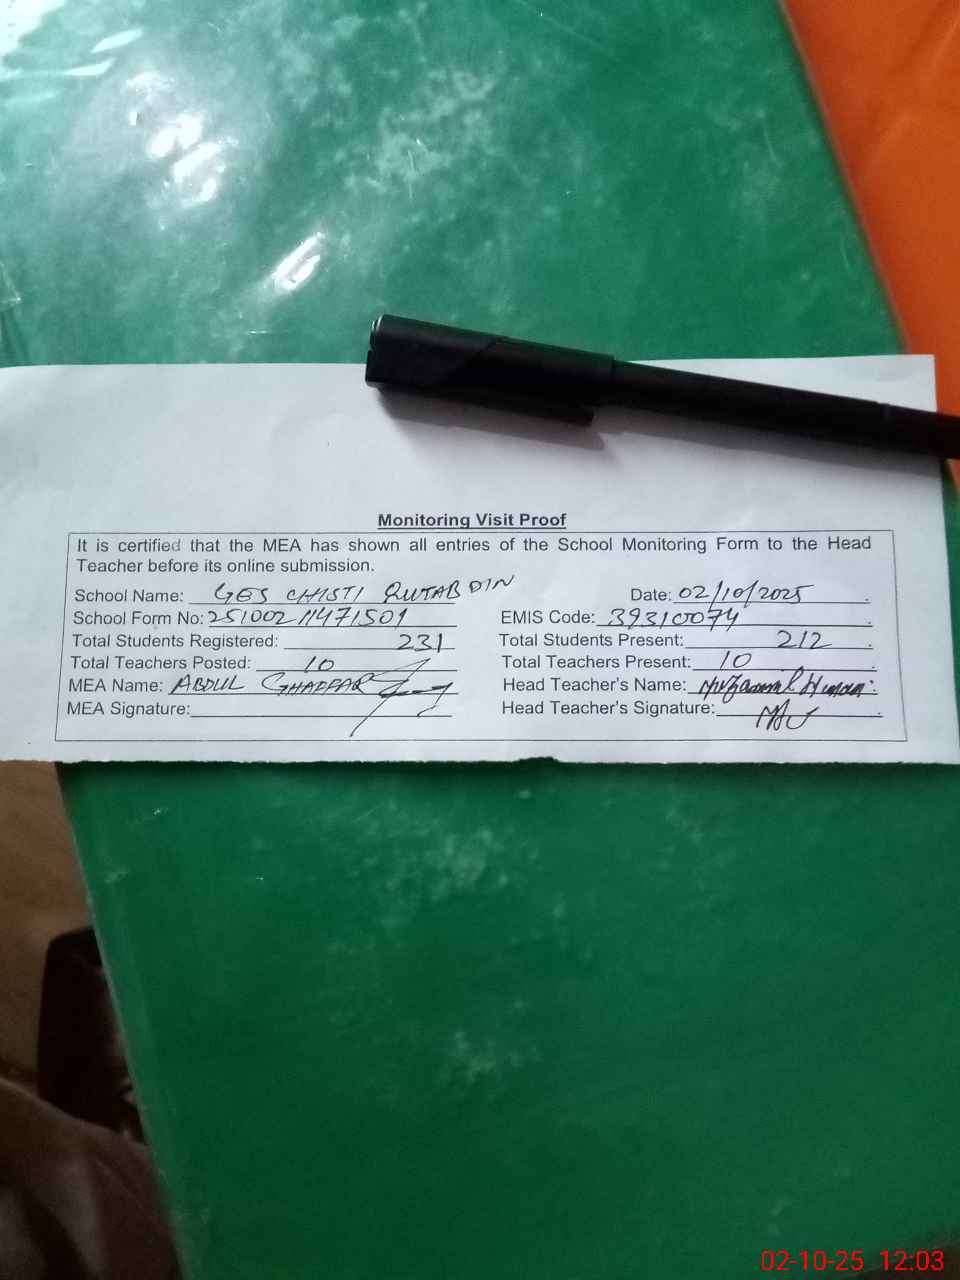 Monitoring Visit Proof
It is certified that the MEA has shown all entries of the School Monitoring Form to the Head
Teacher before its online submission.
School Name: GES CHISTI QUTAB DIN Date: 02/10/2025
School Form No: 251002 11471501 EMIS Code: 39310074
Total Students Registered: 231 Total Students Present: 212
Total Teachers Posted: 10 Total Teachers Present: 10
MEA Name: ABDUL GHAFFAR Head Teacher's Name: Muzammil
MEA Signature: Head Teacher's Signature:
02-10-25 12:03